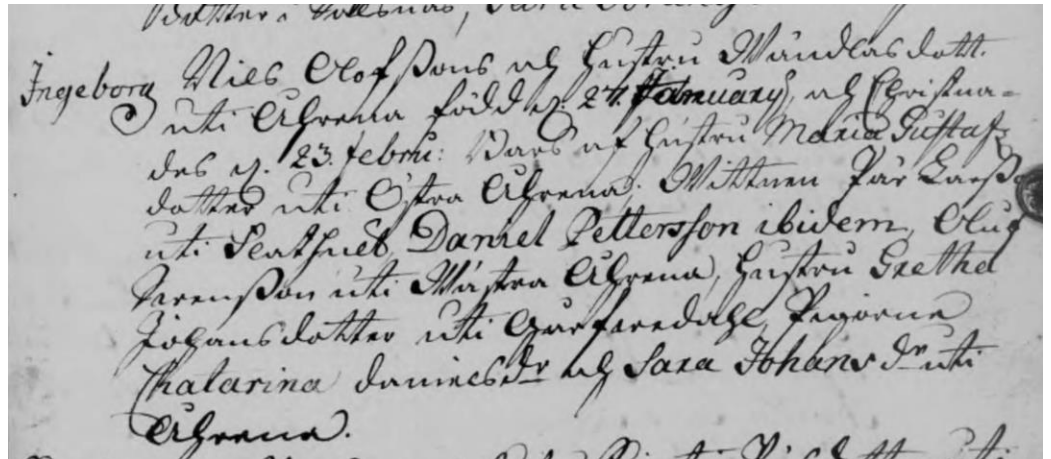 dotter i
Ingeborg Nils Olofßons och hustru Wändlas dott.
uti Ahrena född d. 24. January, och Christna-
des d. 23. febru: Bars af hustru Maria Gustafs
dotter uti Östra Ahrena; Wittnen Pär Larß
uti Daniel Pettersson ibidem, Oluf
Svenßon uti Wästra Ahrena, hustru Gretha
Johansdotter uti Pigorne
Chatarina daniels dr och Sara Johans dr uti
Ahrena.